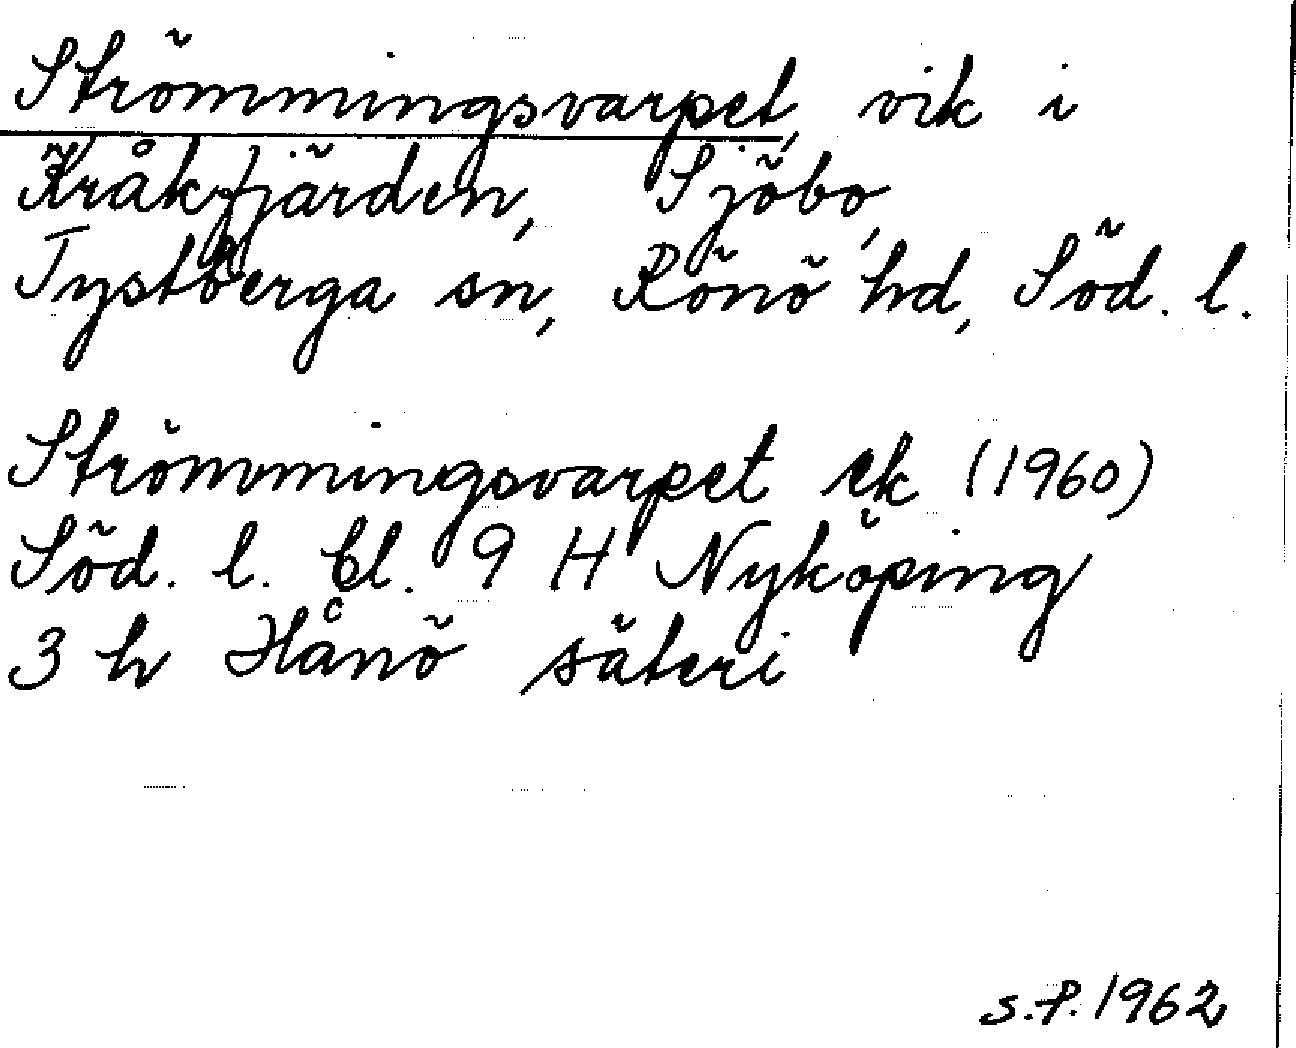 Strömmingsvarpet, vik i
Kråkfjärden, Sjöbo,
Tystberga sn, Rönö hd, Söd. l.
Strömmingsvarpet ek (1960)
Söd. l. bl. 9 H Nyköping
3 h Hånö säteri
s.f. 1962